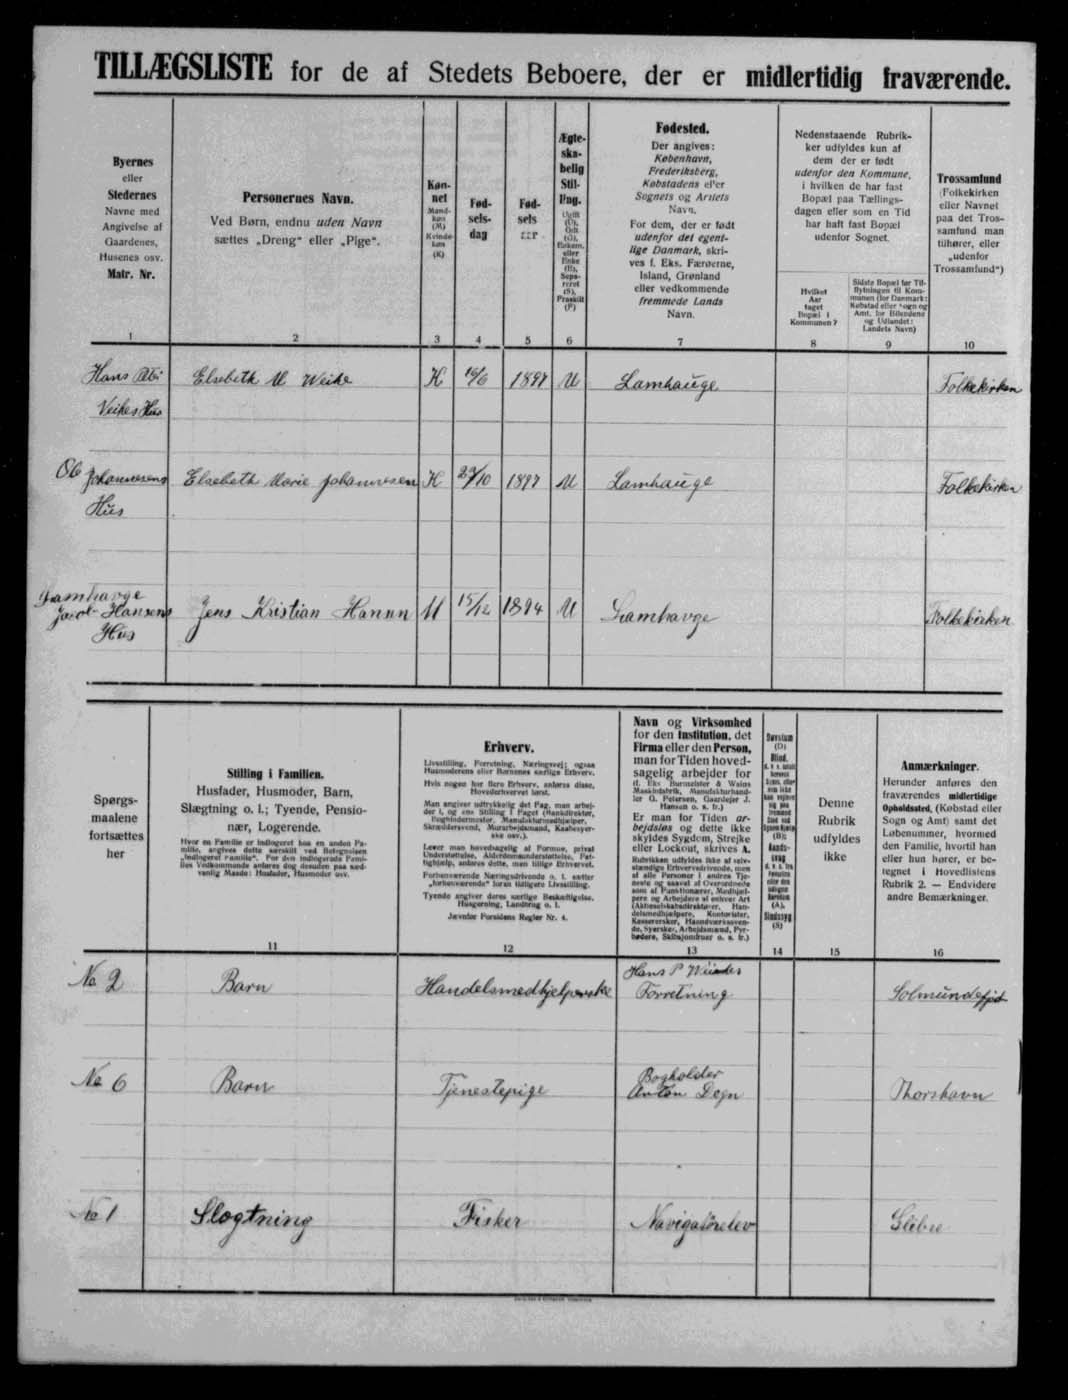 TILLÆGSLISTE for de af Stedets Beboere, der er midlertidig fraværende.
Byernes
eller
Stedernes
Navne med
Angivelse af
Gaardenes,
Husenes osv.
Matr. Nr.
1
Personernes Navn.
Ved Børn, endnu uden Navn
sættes „Dreng“ eller „Pige“.
2
Køn-
net
Mand-
køn
(M)
Kvinde-
køn
(K)
3
Fød-
sels-
dag
4
Fød-
sels
aar
5
Ægte-
ska-
belig
Stil-
ling.
Ugift
(U),
Gift
(G),
Enkem.
eller
Enke
(E),
Sepa-
reret
(S),
Fraskilt
(F)
6
Fødested.
Der angives:
København,
Frederiksberg,
Købstadens eller
Sognets og Amtets
Navn.
For dem, der er født
udenfor det egent-
lige Danmark, skri-
ves f. Eks. Færøerne,
Island, Grønland
eller vedkommende
fremmede Lands
Navn.
7
Nedenstaaende Rubrik-
ker udfyldes kun af
dem der er født
udenfor den Kommune,
i hvilken de har fast
Bopæl paa Tællings-
dagen eller som en Tid
har haft fast Bopæl
udenfor Sognet.
Hvilket
Aar
taget
Bopæl i
Kommunen?
8
Sidste Bopæl før Til-
flytningen til Kom-
munen (for Danmark:
Købstad eller Sogn og
Amt, for Bilandene
og Udlandet:
Landets Navn)
9
Trossamfund
(Folkekirken
eller Navnet
paa det Tros-
samfund man
tilhører, eller
„udenfor
Trossamfund“)
10
Hans Elsbeth M Weihe K 16/6 1897 U Lamhauge Folkekirken
Veihes Hus
Johannesens Elsebeth Marie Johannesen K 29/10 1897 U Lamhauge Folkekirken
Hus
Lamhavge
Jacob Hansens Jens Kristian Hansen M 15/12 1894 U Lamhavge Folkekirken
Hus
Spørgs-
maalene
fortsættes
her
Stilling i Familien.
Husfader, Husmoder, Barn,
Slægtning o. l.; Tyende, Pensio-
nær, Logerende.
Hvor en Familie er indlogeret hos en anden Fa-
milie, angives dette særskilt ved Betegnelsen
„indlogeret Familie“. For den indlogerede Fami-
lies Vedkommende anføres dog desuden paa sæd-
vanlig Maade: Husfader, Husmoder osv.
11
Erhverv.
Livsstilling, Forretning, Næringsvej; ogsaa
Husmoderens eller Børnenes særlige Erhverv.
Hvis nogen har flere Erhverv, anføres disse,
Hovederhvervet først.
Man angiver udtrykkelig det Fag, man arbej-
der i, og ens Stilling i Faget (Bankdirektør,
Bogbindermester, Manufakturhandler,
Skræddersvend, Murarbejdsmand, Kaabesyer-
ske osv.).
Lever man hovedsagelig af Formue, privat
Understøttelse, Alderdomsunderstøttelse, Fat-
tighjælp, anføres dette, men tillige Erhvervet.
Forhenværende Næringsdrivende o. l. sætter
„forhenværende“ foran tidligere Livsstilling.
Tyende angiver deres særlige Beskæftigelse.
Husgerning, Landbrug o. l.
Jævnfør Forsidens Regler Nr. 4.
12
Navn og Virksomhed
for den Institution, det
Firma eller den Person,
man for Tiden hoved-
sagelig arbejder for
(f. Eks. Burmeister & Wains
Maskinfabrik, Manufakturhand-
ler G. Petersen, Gaardejer J.
Hansen o. s. fr.)
Er man for Tiden ar-
bejdsløs og dette ikke
skyldes Sygdom, Strejke
eller Lockout, skrives A.
Rubrikken udfyldes ikke af selv-
stændige Erhvervsdrivende, men
af alle Personer i andres Tje-
neste og saavel af Overordnede
som af Funktionærer, Medhjæl-
pere og Arbejdere af enhver Art
(Aktieselskabsdirektører, Han-
delsmedhjælpere, Kontorister,
Kasserersker, Haandværkssven-
de, Syersker, Arbejdsmænd, Fyr-
bødere, Skibsjomfruer o. s. fr.)
13
Døvstum
(D)
Blind,
(B);
(A),
Sindssyg
(S)
14
Denne
Rubrik
udfyldes
ikke
15
Anmærkninger.
Herunder anføres den
fraværendes midlertidige
Opholdssted, (Købstad eller
Sogn og Amt) samt det
Løbenummer, hvormed
den Familie, hvortil han
eller hun hører, er be-
tegnet i Hovedlistens
Rubrik 2. — Endvidere
andre Bemærkninger.
16
No 2 Barn Handelsmedhjelperske Hans P
Forretning
No 6 Barn Tjenestepige Bogholder
Anton Degn Thorshavn
No 1 Slogtning Fisker Navigatørelev Glibre